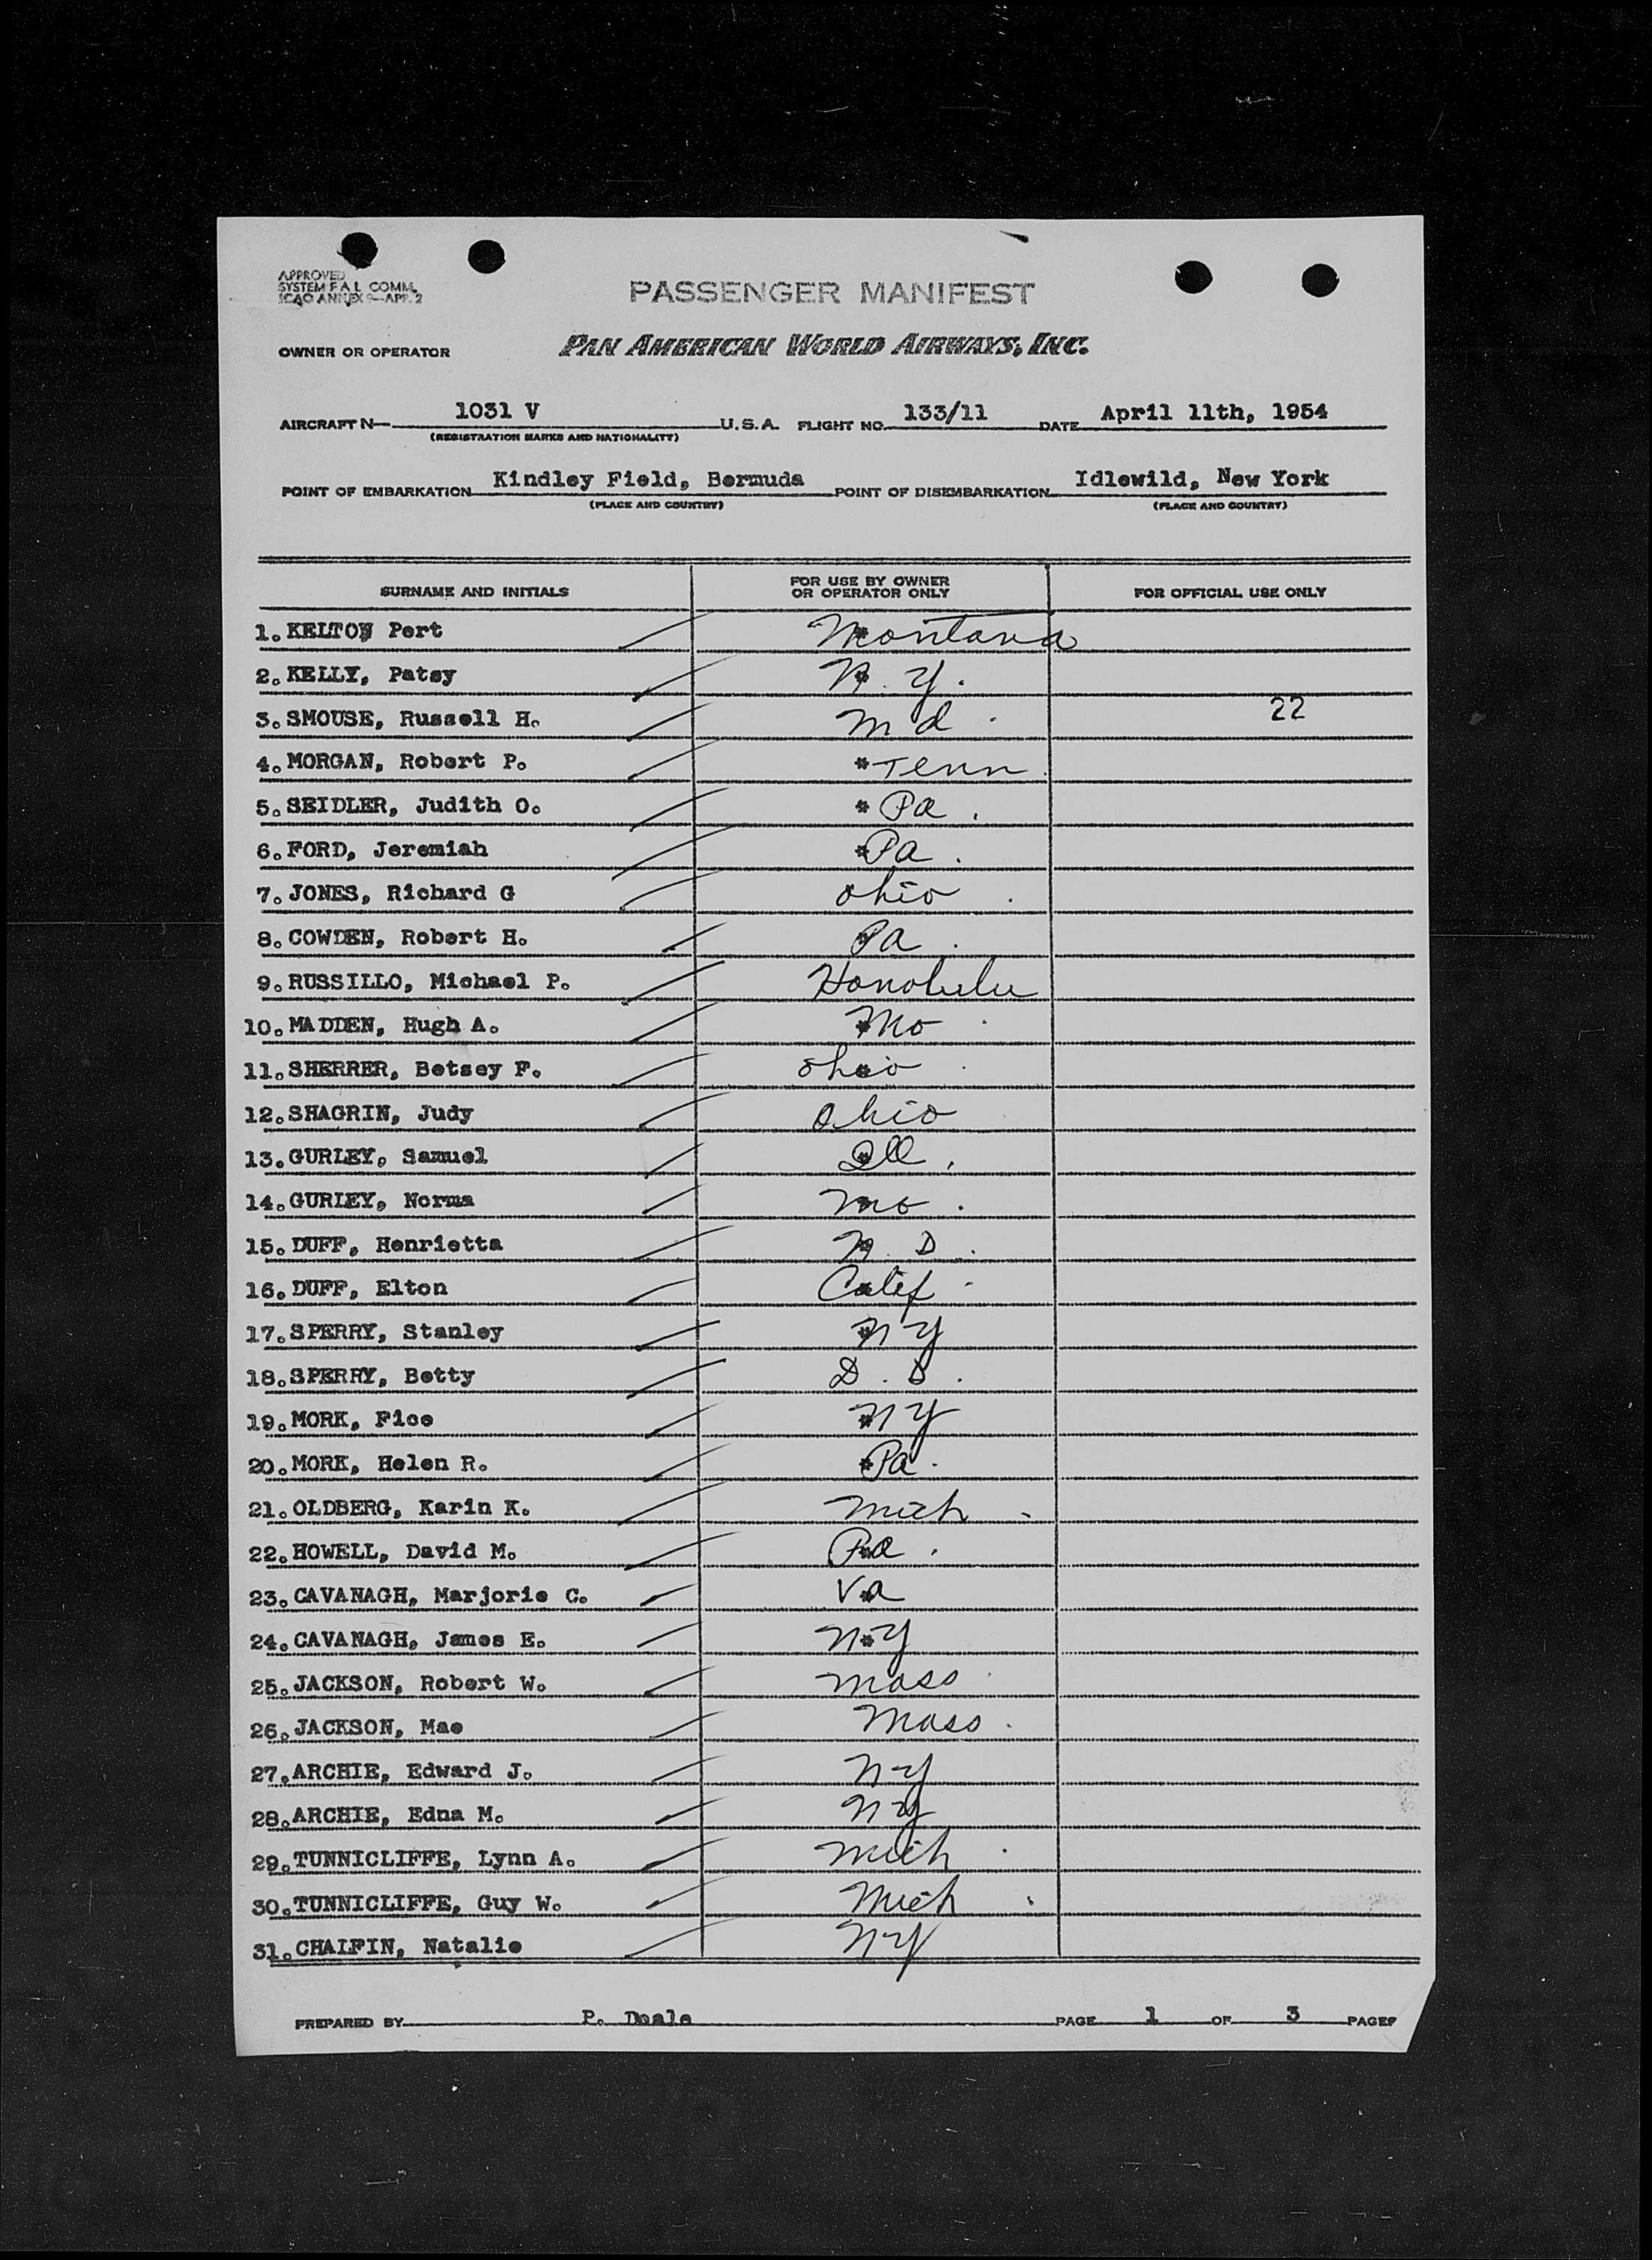 APPROVED
SYSTEM F A L COMM.
ICAO ANNEX 9—APP. 2
PASSENGER MANIFEST
OWNER OR OPERATOR PAN AMERICAN WORLD AIRWAYS, INC.
AIRCRAFT N— 1031 V U.S.A. FLIGHT NO. 133/11 DATE April 11th, 1954
(REGISTRATION MARKS AND NATIONALITY)
POINT OF EMBARKATION Kindley Field, Bermuda POINT OF DISEMBARKATION Idlewild, New York
(PLACE AND COUNTRY) (PLACE AND COUNTRY)
SURNAME AND INITIALS FOR USE BY OWNER OR OPERATOR ONLY FOR OFFICIAL USE ONLY
1. KELTON Pert Montana
2. KELLY, Patsy N. Y.
3. SMOUSE, Russell H. Md 22
4. MORGAN, Robert P. * Tenn
5. SEIDLER, Judith O. * Pa.
6. FORD, Jeremiah * Pa.
7. JONES, Richard G Ohio
8. COWDEN, Robert H. Pa.
9. RUSSILLO, Michael P. Honolulu
10. MADDEN, Hugh A. * Mo
11. SHERRER, Betsey F. Ohio
12. SHAGRIN, Judy Ohio
13. GURLEY, Samuel Ill.
14. GURLEY, Norma Mo.
15. DUFF, Henrietta N. D.
16. DUFF, Elton Calif
17. SPERRY, Stanley * N Y
18. SPERRY, Betty
19. MORK, Fice * N Y
20. MORK, Helen R. * Pa.
21. OLDBERG, Karin K. Mich
22. HOWELL, David M. Pa.
23. CAVANAGH, Marjorie C. Va
24. CAVANAGH, James E. N * Y
25. JACKSON, Robert W. Mass
26. JACKSON, Mae Mass
27. ARCHIE, Edward J. N Y
28. ARCHIE, Edna M. N Y
29. TUNNICLIFFE, Lynn A. Mich
30. TUNNICLIFFE, Guy W. Mich
31. CHALPIN, Natalie N Y
PREPARED BY P. Doale PAGE 1 OF 3 PAGES